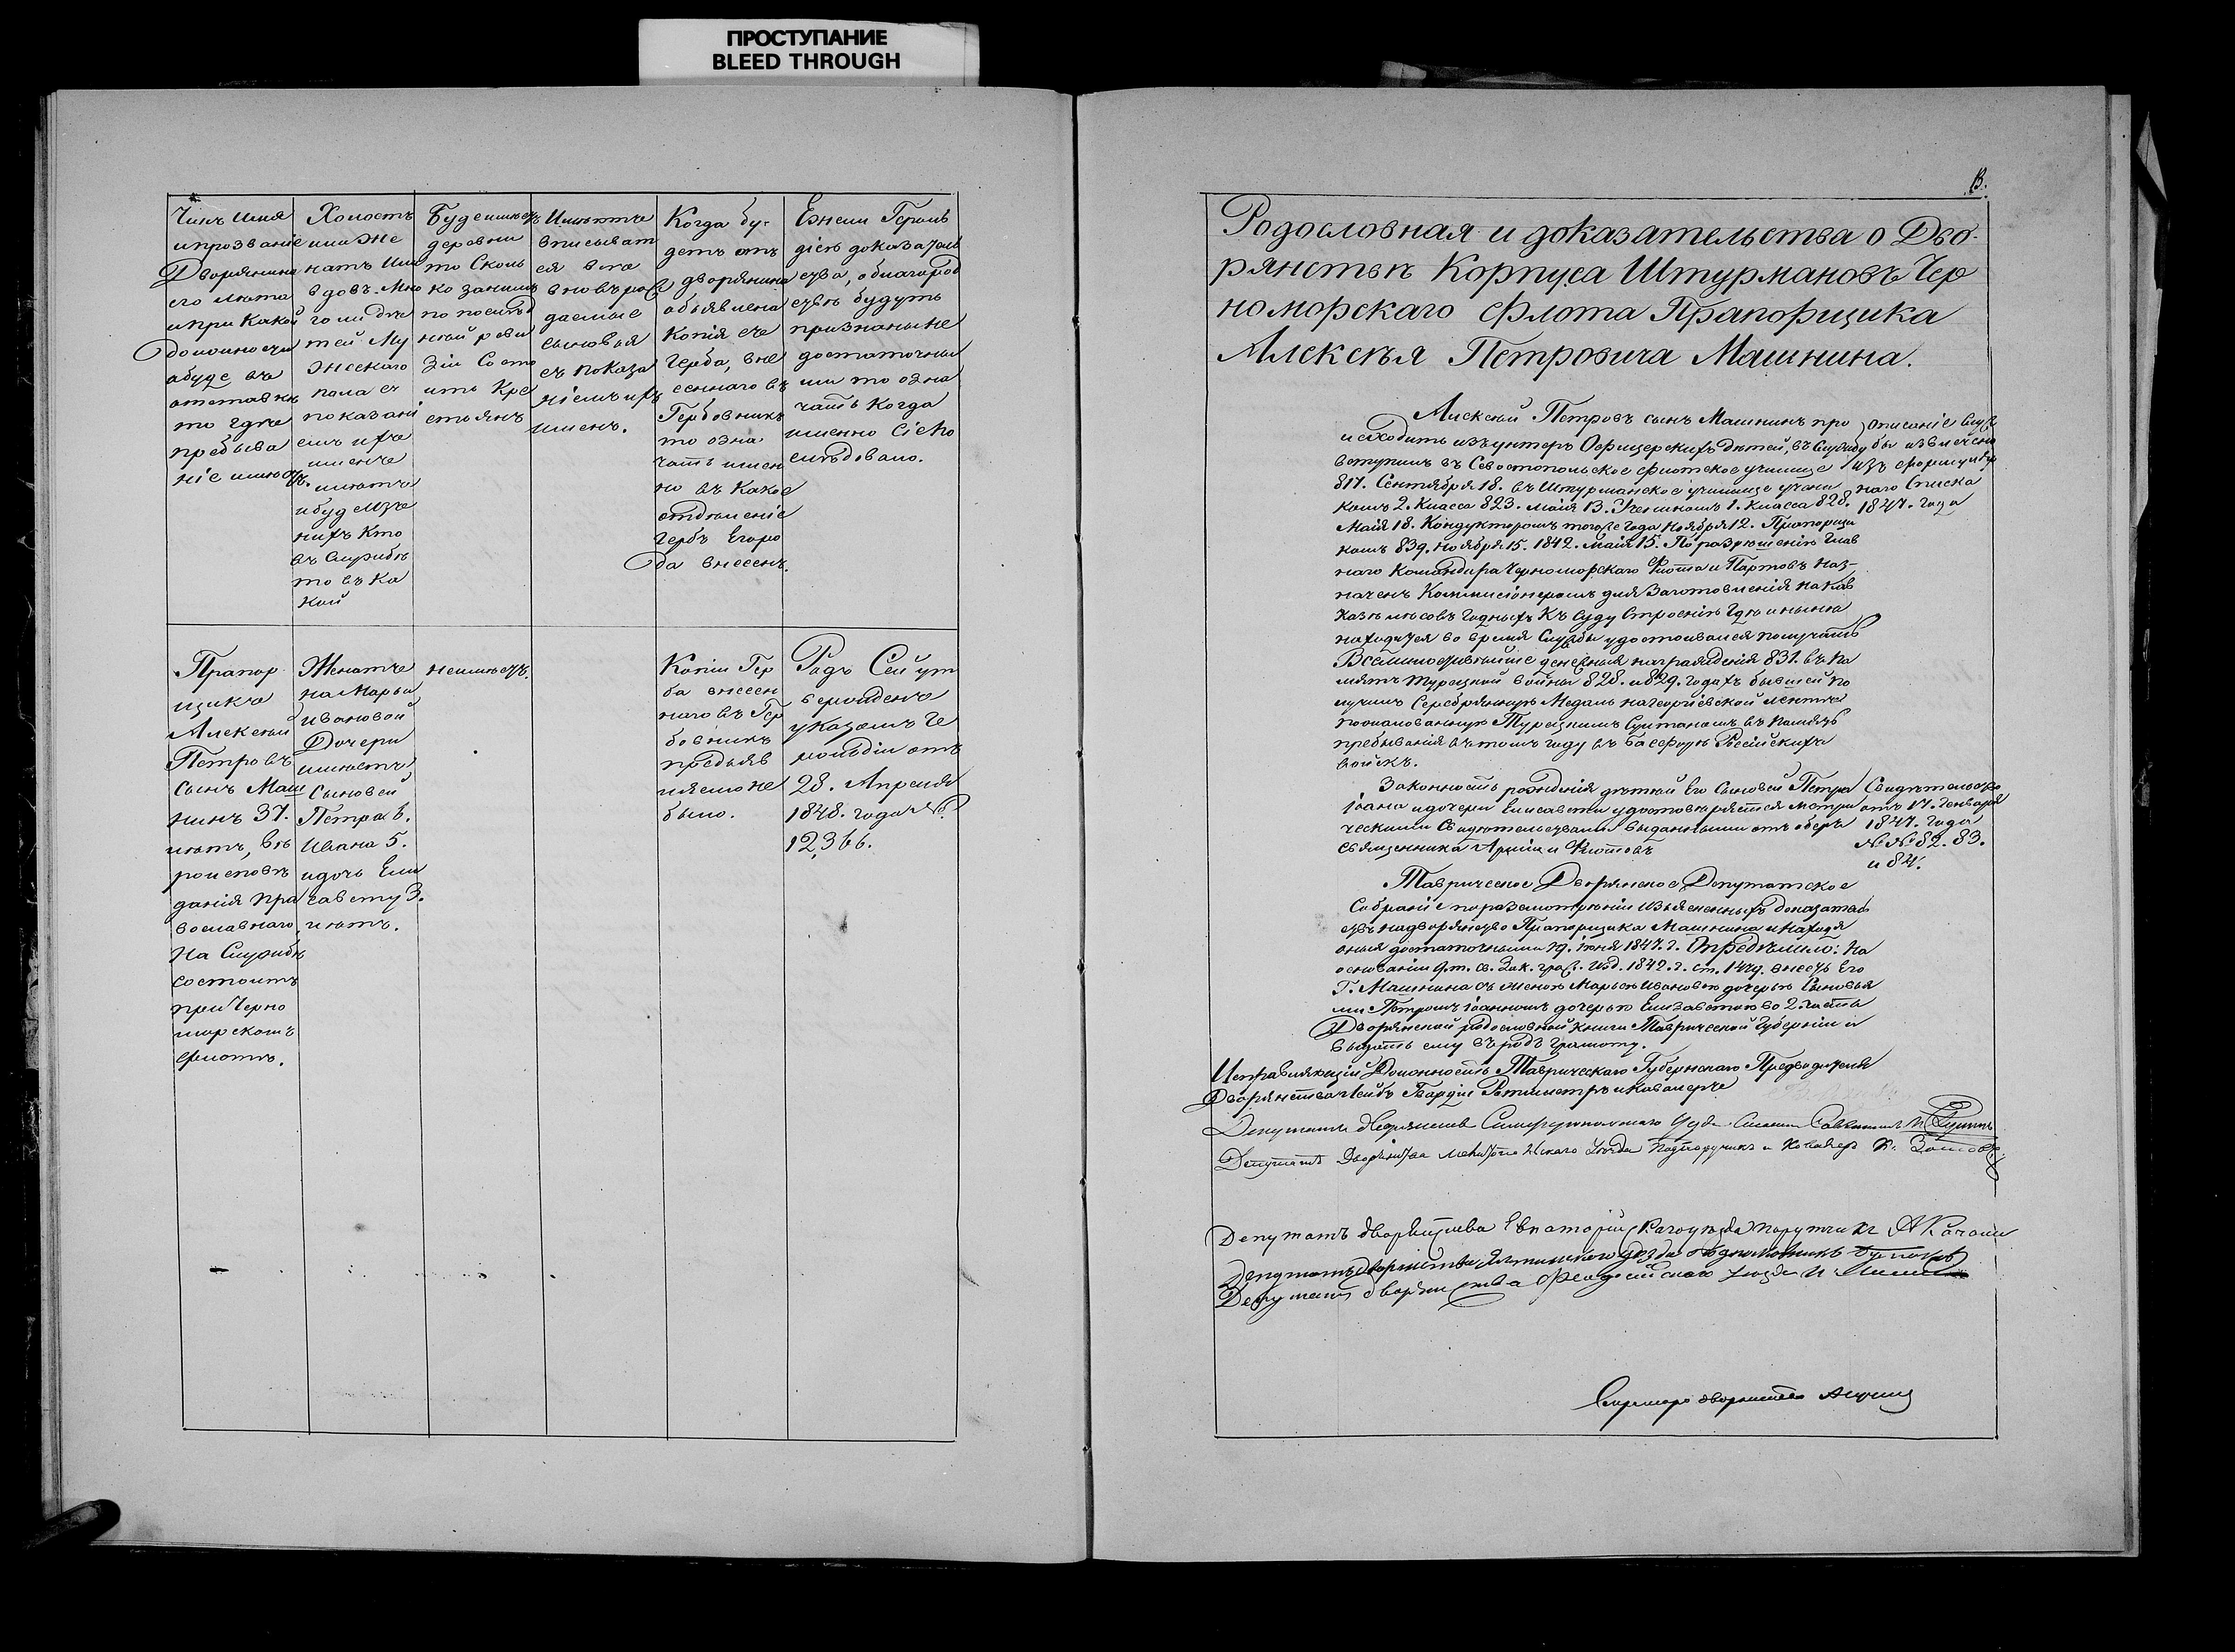 ПРОСТУПАНИЕ
BLEED THROUGH
Чинъ имя
и прозваніе
Дворянина
его лѣта
и при какой
должности
а буде въ
отставкѣ
то гдѣ
пребыва
ніе имѣетъ.
Холостъ
или же
натъ или
вдовъ. Мно
го ли дѣ
тей Му
жескаго
пола съ
показані
емъ ихъ
именъ
имѣетъ
и буде изъ
нихъ кто
въ службѣ
то въ ка
кой
Буде имѣетъ
деревни
то сколь
ко за нимъ
по послѣд
ней реви
зіи состо
итъ кре
стьянъ
Имѣетъ
вписыват
ся въ
вновь рож
даемые
сыновья
съ показа
ніемъ ихъ
именъ.
Когда бу-
детъ отъ
дворянина
объявлена
Копія съ
Герба, вне
сеннаго въ
Гербовникъ
то озна
чать имен
но въ какое
отдѣленіе
гербъ Его ро
да внесенъ.
Ежели Героль
діею доказатель
ства, о благород
ствѣ будутъ
признаны не
достаточны
ми то озна
чать когда
именно сіе по
слѣдовало.
Прапор
щикъ
Алексѣй
Петровъ
сынъ Маш
нинъ 37.
лѣтъ, вѣ
роисповѣ
данія пра
вославнаго,
на службѣ
состоитъ
при Черно
морскомъ
флотѣ.
Женатъ
на Марьѣ
Ивановой
Дочери
имѣетъ
сыновей
Петра 6.
Ивана 5.
и дочь Ели
савету 3.
лѣтъ.
неимѣетъ.
Копіи Гер
ба внесен
наго въ Гер
бовникъ
предъяв
ляемо не
было.
Родъ Сей ут
вержденъ
указомъ Ге
рольдіи отъ
28. Апреля
1848. года №
12,366.
13.
Родословная и доказательства о Дво-
рянствѣ Корпуса Штурмановъ Чер
номорскаго Флота Прапорщика
Алексѣя Петровича Машнина.
Алексѣй Петровъ сынъ Машнинъ про
исходитъ изъ унтеръ Офицерскихъ дѣтей, въ службу
вступилъ въ Севастопольское флотское училище
817. Сентября 18. въ Штурманское училище учени
комъ 2. Класса 823. маія 13. Ученикомъ 1. Класса 828.
Маія 18. Кондукторомъ того же года Ноября 12. Прапорщи
комъ 839. ноября 15. 1842. маія 15. По разрѣшенію Глав
наго Командира Черноморскаго Флота и Портовъ наз-
наченъ Коммисіонеромъ для заготовленія на Кав
казѣ лѣсовъ годныхъ къ судустроенію гдѣ и нынѣ
находится во время службы удостоивался получать
Всемилостивѣйше денежныя награжденія 831. въ па
мять Турецкой войны 828. и 829. годахъ бывшей по
лучилъ серебрянную Медаль на георгіевской лентѣ
пожалованную Турецкимъ Султаномъ въ память
пребыванія въ томъ году въ Босфорѣ Россійскихъ
войскъ.
Описаніе служ
бы извлечено
изъ формуляр
наго Списка
1847. года
Законность рожденія дѣтей Его Сыновей Петра
Іоана и дочери Елисаветы удостовѣряется метри
ческими Свидетельствами выданными отъ оберъ
священника Арміи и Флотовъ
Свидѣтельство
отъ 17. Генваря
1847. года
№ № 82. 83.
и 84.
Таврическое Дворянское Депутатское
Собраніе по разсмотрѣніи изъясненныхъ доказатель
ствъ на дворянство Прапорщика Машнина и находя
оныя достаточными 19. Іюня 1847. г. Опредѣлило: на
основаніи 9. т. св. Зак. граж. изд. 1842. г. ст. 1449. внесть Его
Г. Машнина съ женою Марьею Ивановою дочерью сыновья
ми Петромъ Іоанномъ дочерью Елизаветою во 2. часть
Дворянской родословной книги Таврической Губерніи и
выдать ему въ родъ грамоту.
Исправляющій Должность Таврическаго Губернскаго Предводителя
Дворянства Лейбъ Гвардіи Ротмистръ и Кавалеръ
Депутатъ Дворянства Симферопольскаго Уезда
Депутатъ Дворянства Мелитопольскаго Уѣзда Подпоручикъ и Кавалеръ
Депутатъ дворянства Евпаторійскаго уѣзда поручикъ А Качони
Депутатъ дворянства Ялтинскаго уѣзда
Депутатъ дворянства Феодосійскаго уѣзда
Секретарь дворянства